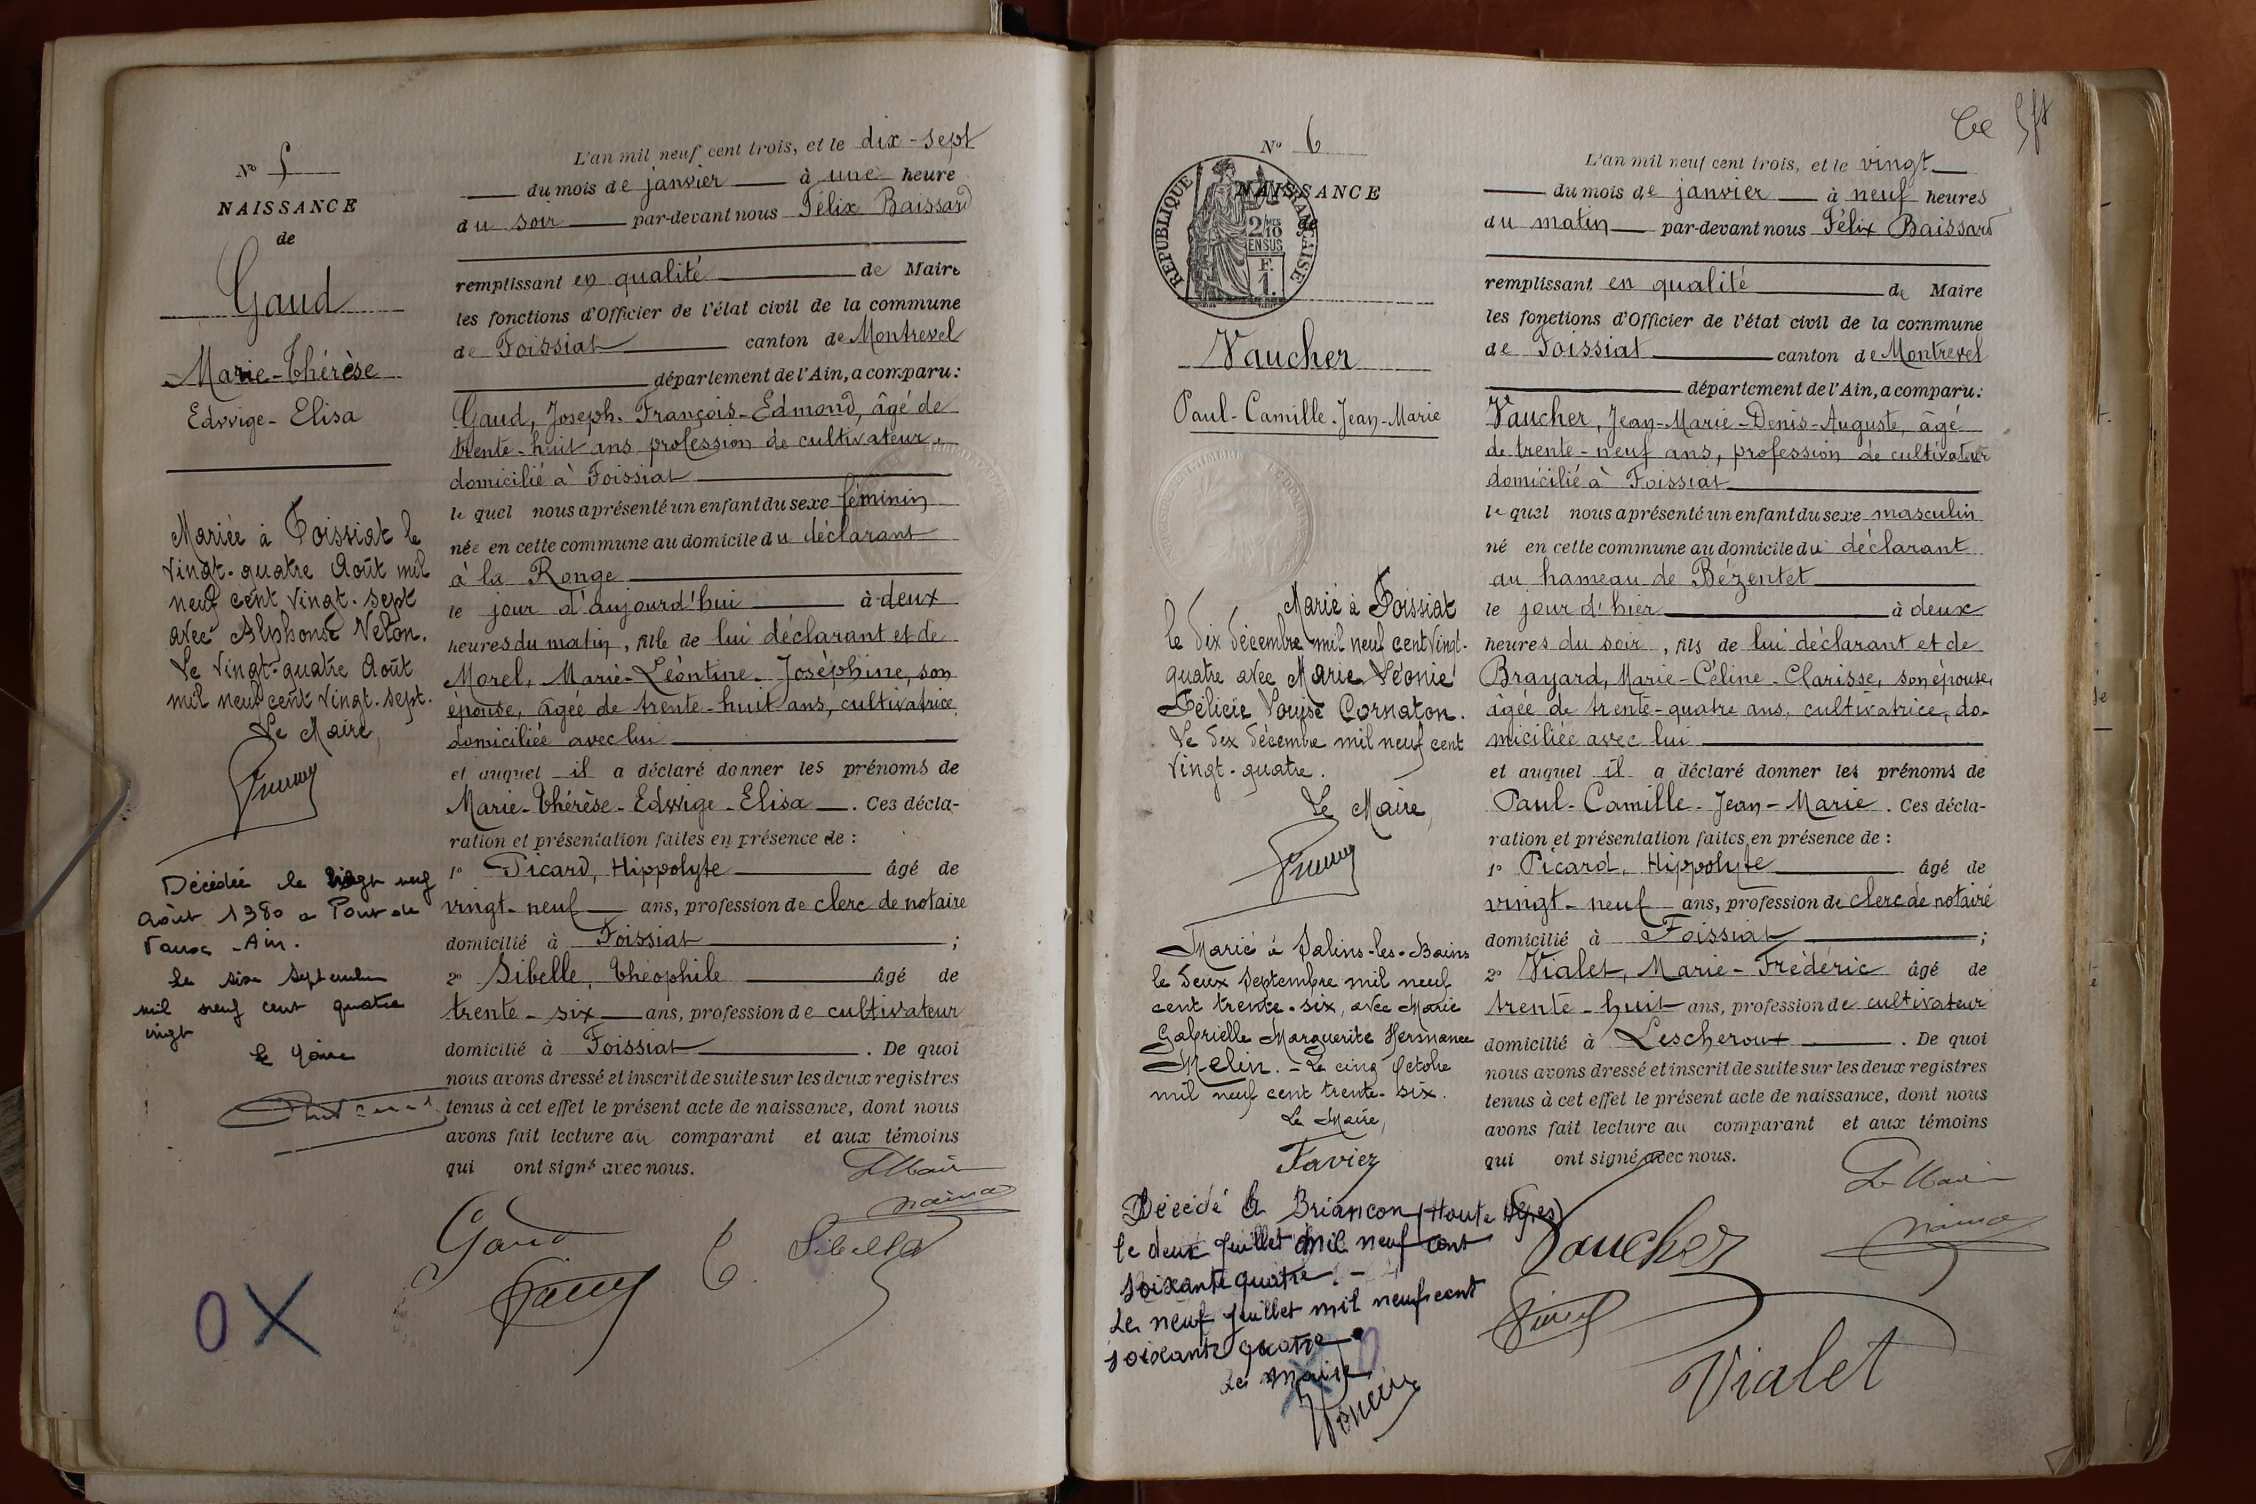 N° 5
NAISSANCE
de
Gaud
Marie-Thérèse
Edwige-Elisa
Mariée à Foissiat le
vingt-quatre Août mil
neuf cent vingt-sept
avec Alphonse Velon.
Le vingt-quatre Août
mil neuf cent vingt-sept.
Le Maire,
Décédée le vingt neuf
août 1980 a Pont de
Vaux - Ain.
Le six Septembre
mil neuf cent quatre
vingt
Le Maire
O X
L'an mil neuf cent trois, et le dix-sept
du mois de janvier à une heure
du soir par-devant nous Félix Baissard
remplissant en qualité de Maire
les fonctions d'Officier de l'état civil de la commune
de Foissiat canton de Montrevel
département de l'Ain, a comparu:
Gaud, Joseph-François-Edmond, âgé de
trente-huit ans profession de cultivateur
domicilié à Foissiat
lequel nous a présenté un enfant du sexe féminin
née en cette commune au domicile du déclarant
à la Ronge
le jour d'aujourd'hui à deux
heures du matin, fille de lui déclarant et de
Morel, Marie-Léontine-Joséphine, son
épouse, âgée de trente-huit ans, cultivatrice,
domiciliée avec lui
et auquel il a déclaré donner les prénoms de
Marie-Thérèse-Edwige-Elisa. Ces décla-
ration et présentation faites en présence de:
1° Picard, Hippolyte âgé de
vingt-neuf ans, profession de clerc de notaire
domicilié à Foissiat;
2° Sibelle, Théophile âgé de
trente-six ans, profession de cultivateur
domicilié à Foissiat. De quoi
nous avons dressé et inscrit de suite sur les deux registres
tenus à cet effet le présent acte de naissance, dont nous
avons fait lecture au comparant et aux témoins
qui ont signé avec nous.
Le Maire
Gaud T. Sibelle
N° 6
NAISSANCE
de
REPUBLIQUE FRANÇAISE
2/10 EN SUS
F. 1.
Vaucher
Paul-Camille-Jean-Marie
Marié à Foissiat
le dix décembre mil neuf cent vingt-
quatre avec Marie Léonie
Félicie Louise Cornaton.
Le dix décembre mil neuf cent
vingt-quatre.
Le Maire,
Marié à Salins-les-Bains
le deux Septembre mil neuf
cent trente-six, avec Marie
Gabrielle Marguerite Hermance
Melin. - Le cinq Octobre
mil neuf cent trente-six.
Le Maire,
Favier
Décédé à Briançon (Haute Alpes)
le deux juillet mil neuf cent
soixante quatre. -
Le neuf juillet mil neuf cent
soixante quatre.
Le Maire,
X O
L'an mil neuf cent trois, et le vingt
du mois de janvier à neuf heures
du matin par-devant nous Félix Baissard
remplissant en qualité de Maire
les fonctions d'Officier de l'état civil de la commune
de Foissiat canton de Montrevel
département de l'Ain, a comparu:
Vaucher, Jean-Marie-Denis-Auguste, âgé
de trente-neuf ans, profession de cultivateur
domicilié à Foissiat
lequel nous a présenté un enfant du sexe masculin
né en cette commune au domicile du déclarant
au hameau de Bézentet
le jour d'hier à deux
heures du soir, fils de lui déclarant et de
Brayard, Marie-Céline-Clarisse, son épouse,
âgée de trente-quatre ans, cultivatrice, do-
miciliée avec lui
et auquel il a déclaré donner les prénoms de
Paul-Camille-Jean-Marie. Ces décla-
ration et présentation faites en présence de:
1° Picard, Hippolyte âgé de
vingt-neuf ans, profession de clerc de notaire
domicilié à Foissiat;
2° Vialet, Marie-Frédéric âgé de
trente-huit ans, profession de cultivateur
domicilié à Lescheroux. De quoi
nous avons dressé et inscrit de suite sur les deux registres
tenus à cet effet le présent acte de naissance, dont nous
avons fait lecture au comparant et aux témoins
qui ont signé avec nous.
Le Maire
Vaucher
Vialet